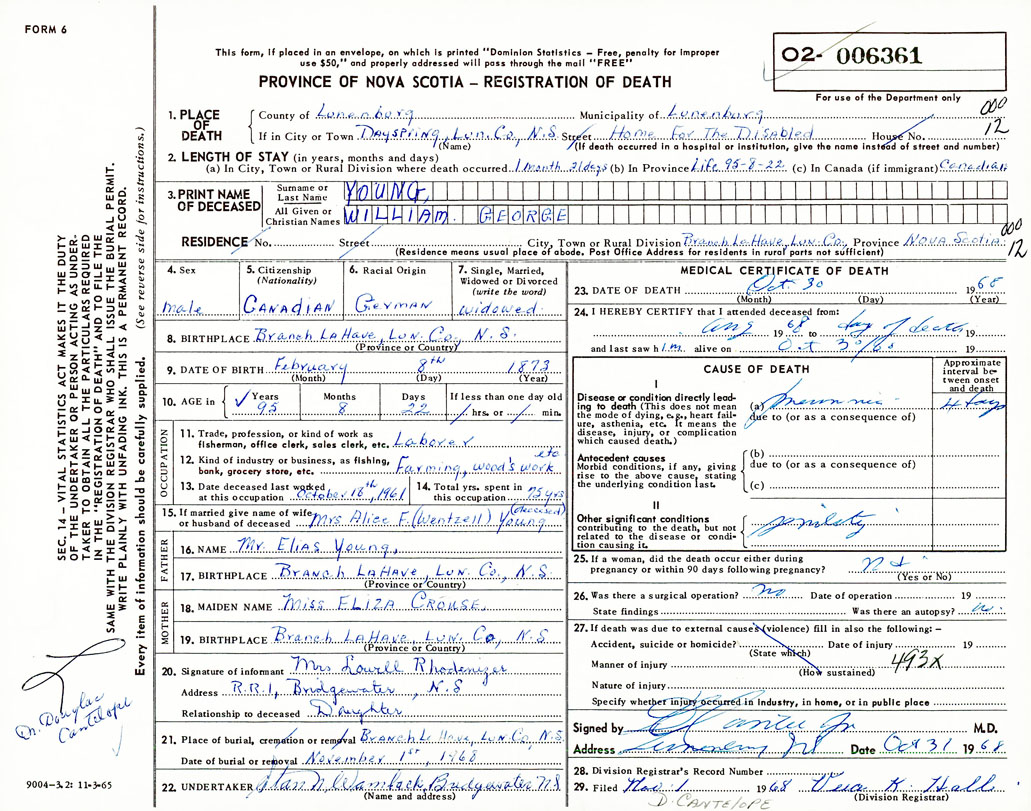 FORM 6
This form, if placed in an envelope, on which is printed "Dominion Statistics – Free, penalty for improper
use $50," and properly addressed will pass through the mail "FREE"
PROVINCE OF NOVA SCOTIA – REGISTRATION OF DEATH
02- 006361
For use of the Department only
SEC. 14 – VITAL STATISTICS ACT MAKES IT THE DUTY
OF THE UNDERTAKER OR PERSON ACTING AS UNDER-
TAKER TO OBTAIN ALL THE PARTICULARS REQUIRED
IN THE "REGISTRATION OF DEATH" AND TO FILE THE
SAME WITH THE DIVISION REGISTRAR WHO SHALL ISSUE THE BURIAL PERMIT.
WRITE PLAINLY WITH UNFADING INK. THIS IS A PERMANENT RECORD.
Every item of information should be carefully supplied. (See reverse side for instructions.)
1. PLACE OF DEATH County of Lunenburg Municipality of Lunenburg 000
If in City or Town Dayspring, Lun. Co, N.S Street Home For The Disabled House No. 12
(Name) (If death occurred in a hospital or institution, give the name instead of street and number)
2. LENGTH OF STAY (in years, months and days)
(a) In City, Town or Rural Division where death occurred 1 month 21 days (b) In Province Life 95-8-22 (c) In Canada (if immigrant) Canadian
3. PRINT NAME OF DECEASED Surname or Last Name YOUNG,
All Given or Christian Names WILLIAM. GEORGE
RESIDENCE No. Street City, Town or Rural Division Branch LaHave, Lun. Co, Province NOVA Scotia. 000 12
(Residence means usual place of abode. Post Office Address for residents in rural parts not sufficient)
4. Sex male
5. Citizenship (Nationality) CANADIAN
6. Racial Origin German
7. Single, Married, Widowed or Divorced (write the word) widowed.
8. BIRTHPLACE Branch LaHave, Lun. Co, N.S.
(Province or Country)
9. DATE OF BIRTH February 8th 1873
(Month) (Day) (Year)
10. AGE in Years 95 Months 8 Days 22 If less than one day old hrs. or min.
OCCUPATION
11. Trade, profession, or kind of work as fisherman, office clerk, sales clerk, etc. Laborer
12. Kind of industry or business, as fishing, bank, grocery store, etc. Farming, wood's work etc
13. Date deceased last worked at this occupation October 18th, 1961
14. Total yrs. spent in this occupation 75 yrs
15. If married give name of wife or husband of deceased Mrs Alice F. (Wentzell) Young (deceased)
FATHER
16. NAME Mr. Elias Young,
17. BIRTHPLACE Branch LaHave, Lun. Co., N.S.
(Province or Country)
MOTHER
18. MAIDEN NAME Miss ELIZA CROUSE.
19. BIRTHPLACE Branch LaHave, Lun. Co, N.S
(Province or Country)
20. Signature of informant Mrs Lowell Rhodenizer
Address R.R.1, Bridgewater, N.S
Relationship to deceased Daughter
21. Place of burial, cremation or removal Branch LaHave, Lun. Co, N.S
Date of burial or removal November 1st, 1968
22. UNDERTAKER Bridgewater NS
(Name and address)
MEDICAL CERTIFICATE OF DEATH
23. DATE OF DEATH Oct 30 1968
(Month) (Day) (Year)
24. I HEREBY CERTIFY that I attended deceased from:
Aug 1968 to day of death, 19
and last saw him alive on Oct 30/68 19
CAUSE OF DEATH
Approximate interval between onset and death
I
Disease or condition directly leading to death (This does not mean the mode of dying, e.g., heart failure, asthenia, etc. It means the disease, injury, or complication which caused death.)
(a) pneumonia 4 days
due to (or as a consequence of)
Antecedent causes
Morbid conditions, if any, giving rise to the above cause, stating the underlying condition last.
(b)
due to (or as a consequence of)
(c)
II
Other significant conditions
contributing to the death, but not related to the disease or condition causing it.
senility
25. If a woman, did the death occur either during pregnancy or within 90 days following pregnancy?
(Yes or No)
26. Was there a surgical operation? no Date of operation 19
State findings Was there an autopsy? no
27. If death was due to external causes (violence) fill in also the following: –
Accident, suicide or homicide? Date of injury 19
(State which)
Manner of injury 493X
(How sustained)
Nature of injury
Specify whether injury occurred in industry, in home, or in public place
Signed by M.D.
Address Lunenburg NS Date Oct 31 1968
28. Division Registrar's Record Number
29. Filed Nov. 1 1968 Vera K. Hall
(Division Registrar)
D. CANTELOPE
Dr. Douglas
Cantelope
9004-3.2: 11-3-65